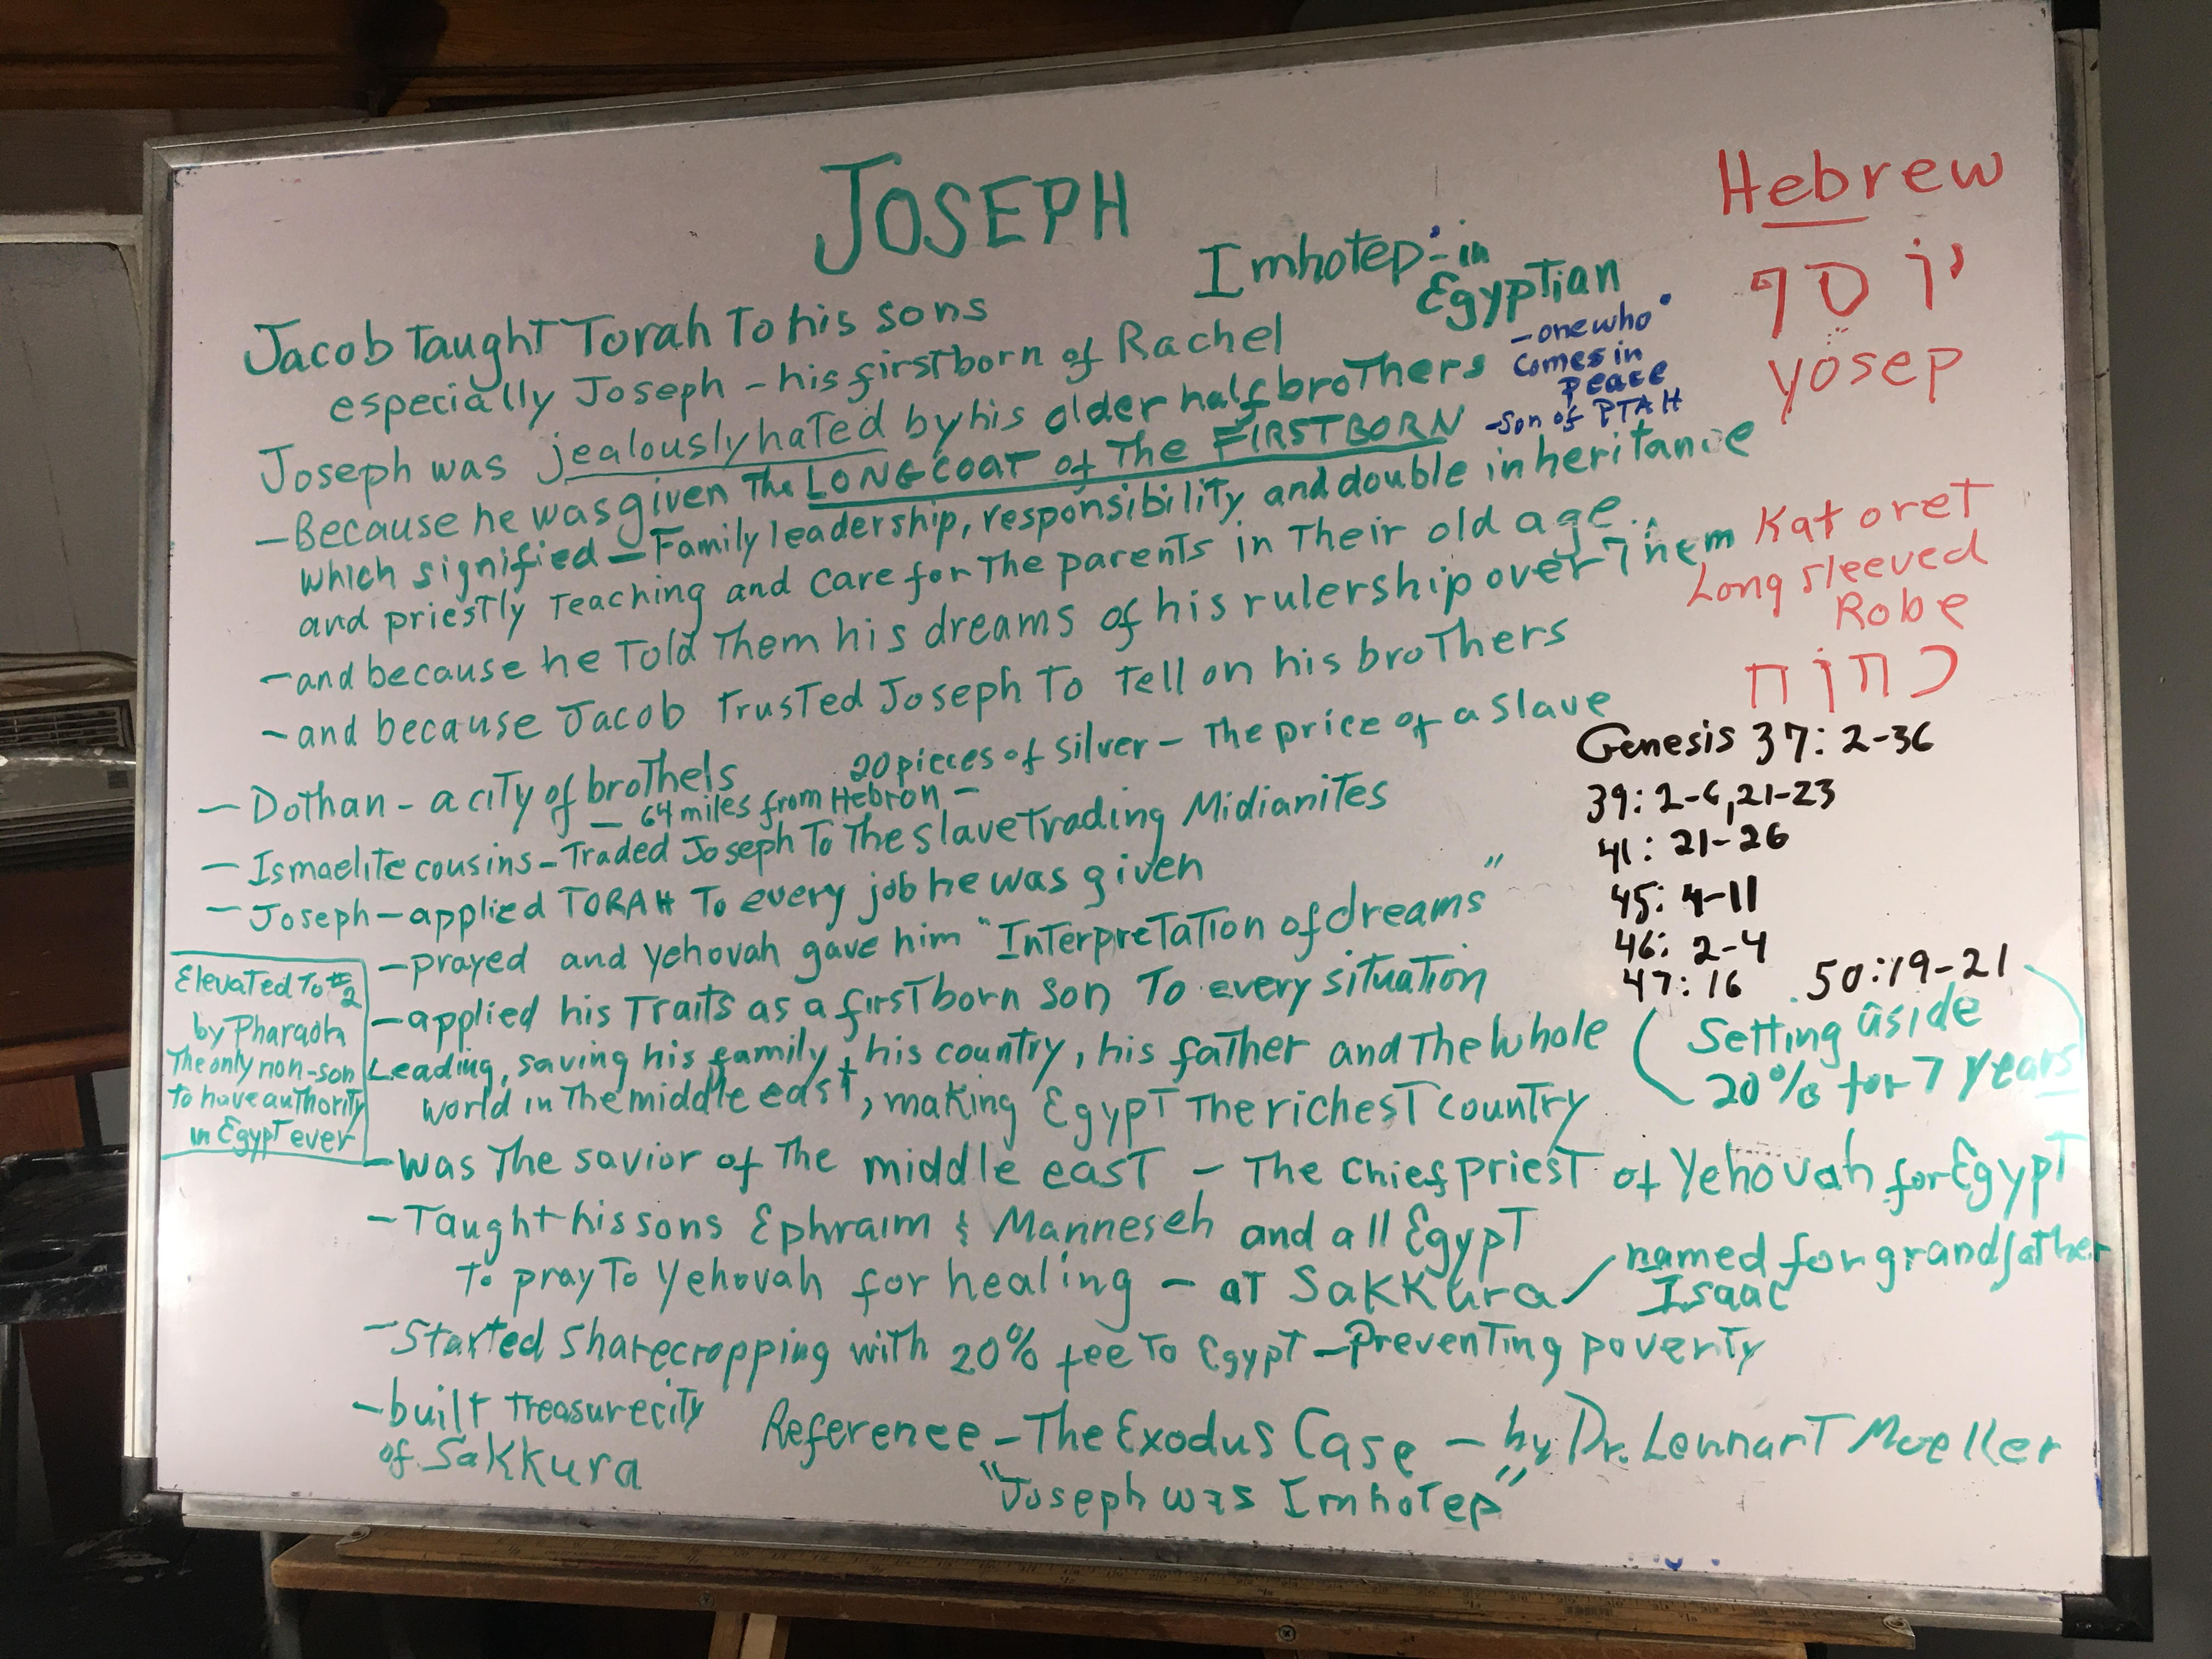 JOSEPH
Hebrew
יוֹסף
yosep
Imhotep - in
Egyptian
- one who
comes in
peace
- Son of PTAH
Jacob taught Torah to his sons
especially Joseph - his firstborn of Rachel
Joseph was jealously hated by his older half brothers
- Because he was given the LONG COAT of the FIRSTBORN
which signified - Family leadership, responsibility and double inheritance
and priestly teaching and care for the parents in their old age.
- and because he told them his dreams of his rulership over them
- and because Jacob trusted Joseph to tell on his brothers
Katoret
Long sleeved
Robe
כתֹנת
20 pieces of silver - the price of a slave
- Dothan - a city of brothels
- 64 miles from Hebron -
- Ismaelite cousins - Traded Joseph to the slave trading Midianites
- Joseph - applied TORAH to every job he was given
- prayed and Yehovah gave him "Interpretation of dreams"
- applied his traits as a firstborn son to every situation
Leading, saving his family, his country, his father and the whole
world in the middle east, making Egypt the richest country
- was the savior of the middle east - the chief priest of Yehovah for Egypt
- Taught his sons Ephraim & Manneseh and all Egypt
to pray to Yehovah for healing - at Sakkura / named for grandfather
Isaac
- Started Sharecropping with 20% fee to Egypt - Preventing poverty
- built treasure city
of Sakkura
Elevated to #2
by Pharaoh
The only non-son
to have authority
in Egypt ever
Genesis 37: 2-36
39: 2-6, 21-23
41: 21-26
45: 4-11
46: 2-4
47: 16 50:19-21
Setting aside
20% for 7 years
Reference - The Exodus Case - by Dr. Lennart Moeller
"Joseph was Imhotep"